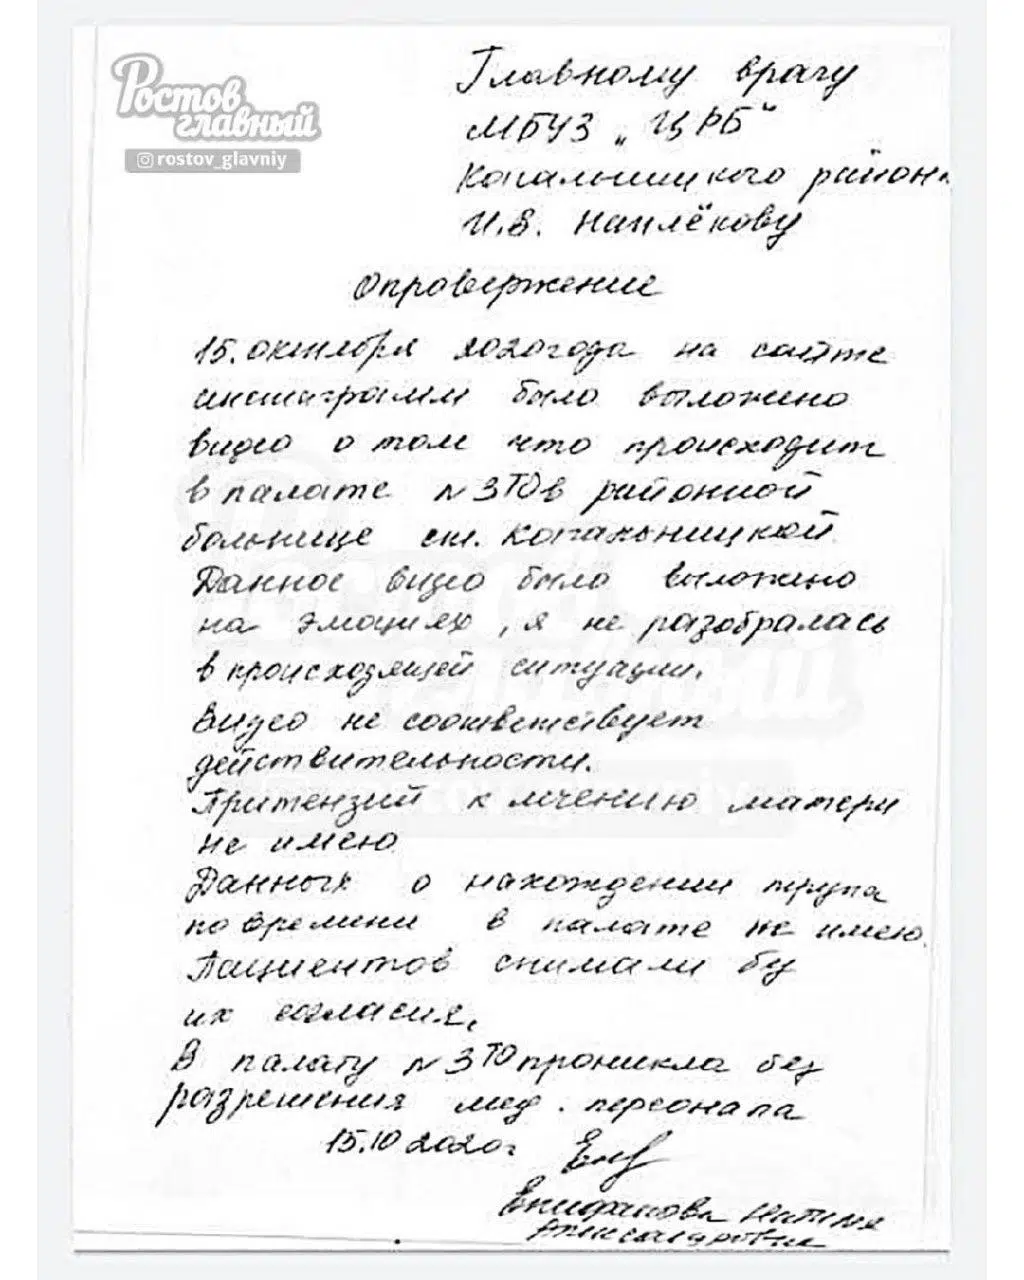 Ростов
главный
rostov_glavniy
Главному врачу
МБУЗ „ЦРБ“
Кагальницкого района
И.В. Наплёкову
Опровержение
15. октября 2020 года на сайте
инстаграмм было выложено
видео о том что происходит
в палате №3 ТО в районной
больнице ст. Кагальницкой.
Данное видео было выложено
на эмоциях, я не разобралась
в происходящей ситуации.
Видео не соответствует
действительности.
Притензий к лечению матери
не имею
Данных о нахождении трупа
по времени в палате не имею.
Пациентов снимали бз
их согласия.
В палату №3 ТО проникла без
разрешения мед. персонала
15.10 2020г
Епифанова Наталия
Александровна